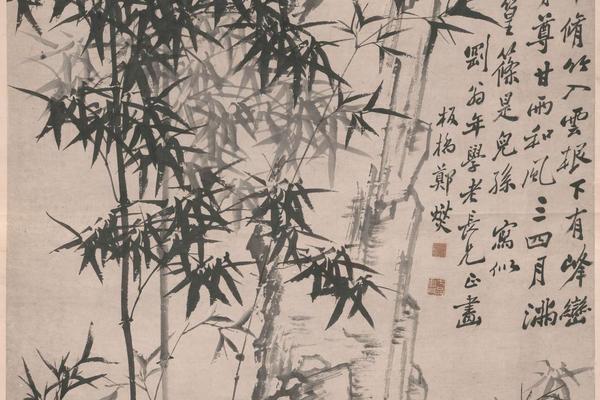 脩竹入雲根下有峰巒
尊甘雨和風三四月滿
篁篠是兒孫 寫似
劉翁年學老長兄正畫
板橋鄭燮